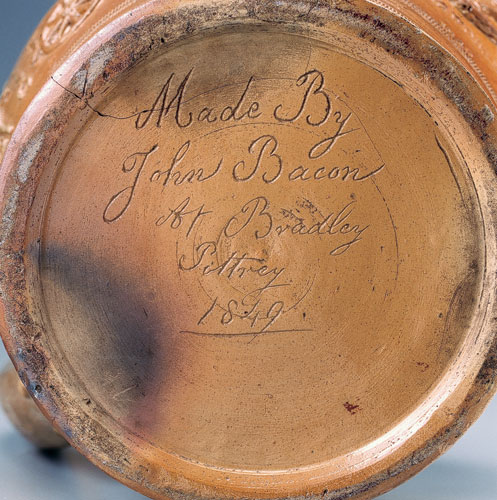 Made By
John Bacon
At Bradley
Pittrey
1849